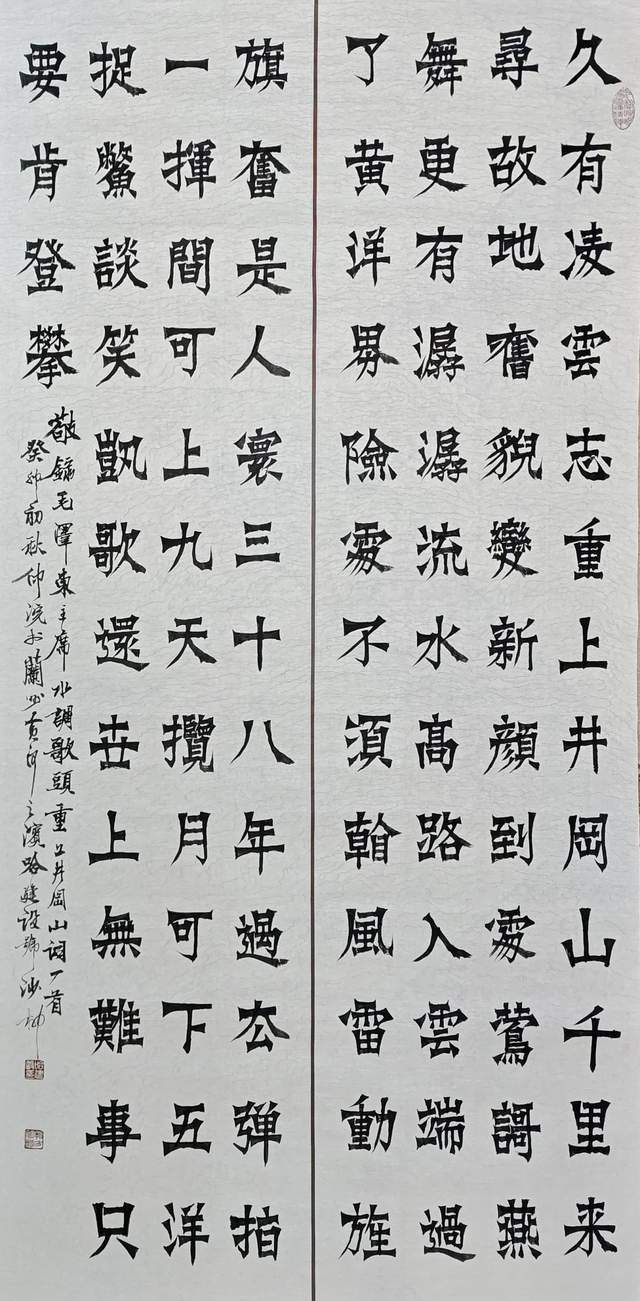 久有凌雲志重上井岡山千里来
尋故地舊貌變新顔到處鶯謌燕
舞更有潺潺流水高路入雲端過
了黄洋界險處不須看風雷動旌
旗奮是人寰三十八年過去弹指
一揮間可上九天攬月可下五洋
捉鱉談笑凱歌還世上無難事只
要肯登攀
敬錄毛澤東主席水調歌頭重上井岡山詞一首
癸卯初秋仲浣於蘭州黄河之濱路建設號沙柳